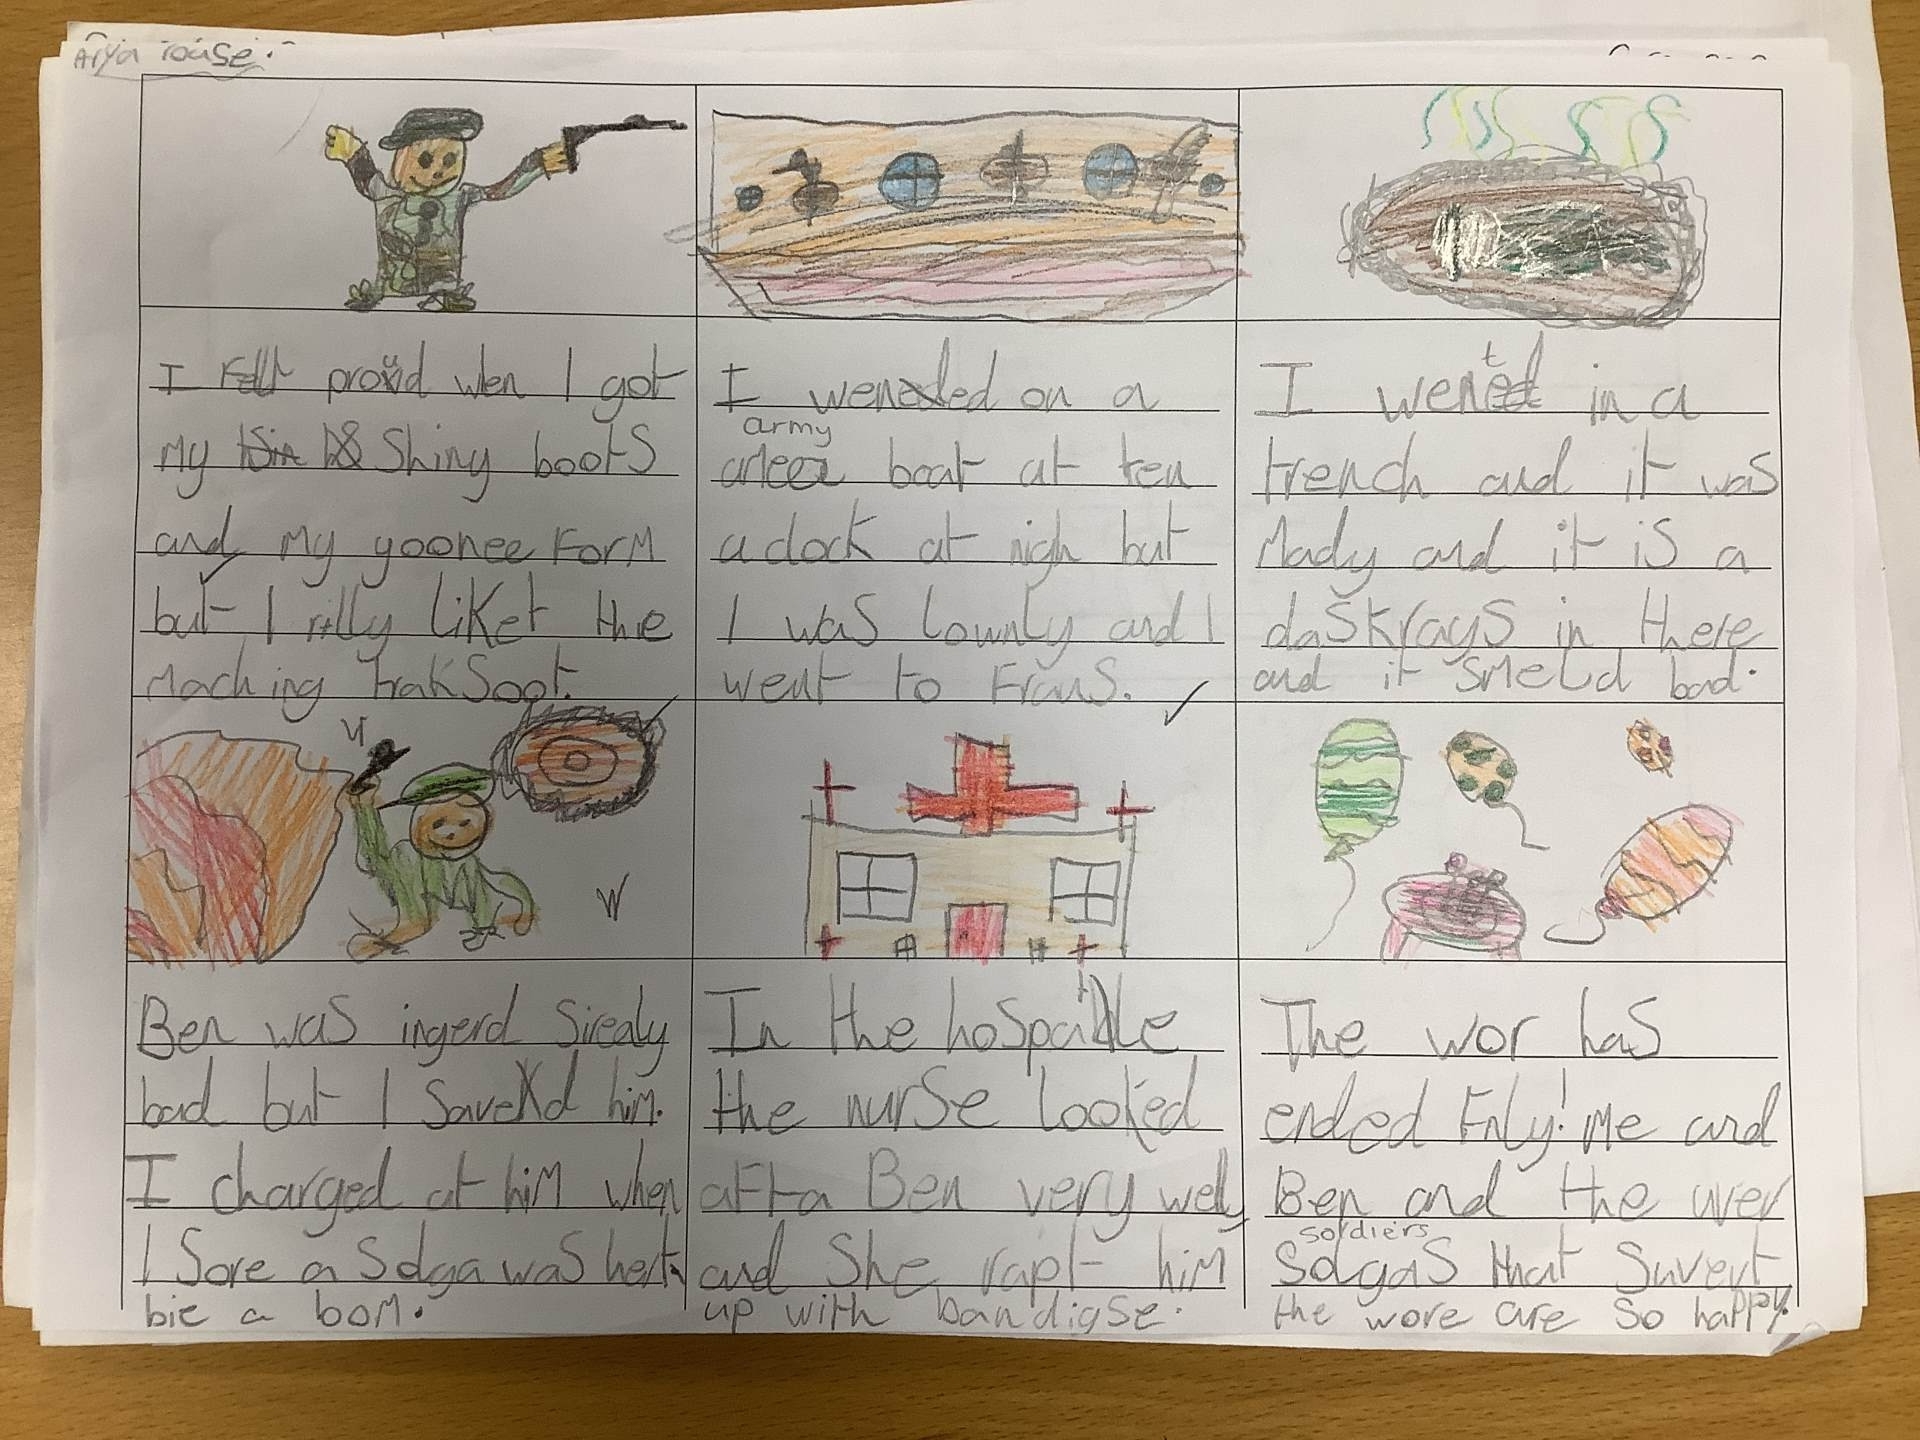 Arya rouse.
I Felt proud wen I got
My Shiny boots
and My yoonee ForM
but I rilly liket the
Maching trakSoot.
I wended on a
army
boat at ten
a clock at nigh but
I was lownly and I
went to Frans.
I went in a
trench and it was
Mady and it is a
daskrays in there
and it SMeLd bad.
Ben was ingerd Sirealy
bad but I Saved hiM.
I charged at hiM when
I Sore a Solga was hert
bie a boM.
In the hospatle
the nurse looked
aFta Ben very welly
and She rapt hiM
up with bandigse.
The wor has
ended Fnly! Me and
Ben and the uver
soldiers
SolgaS that Suvevt
the wore are So happy.